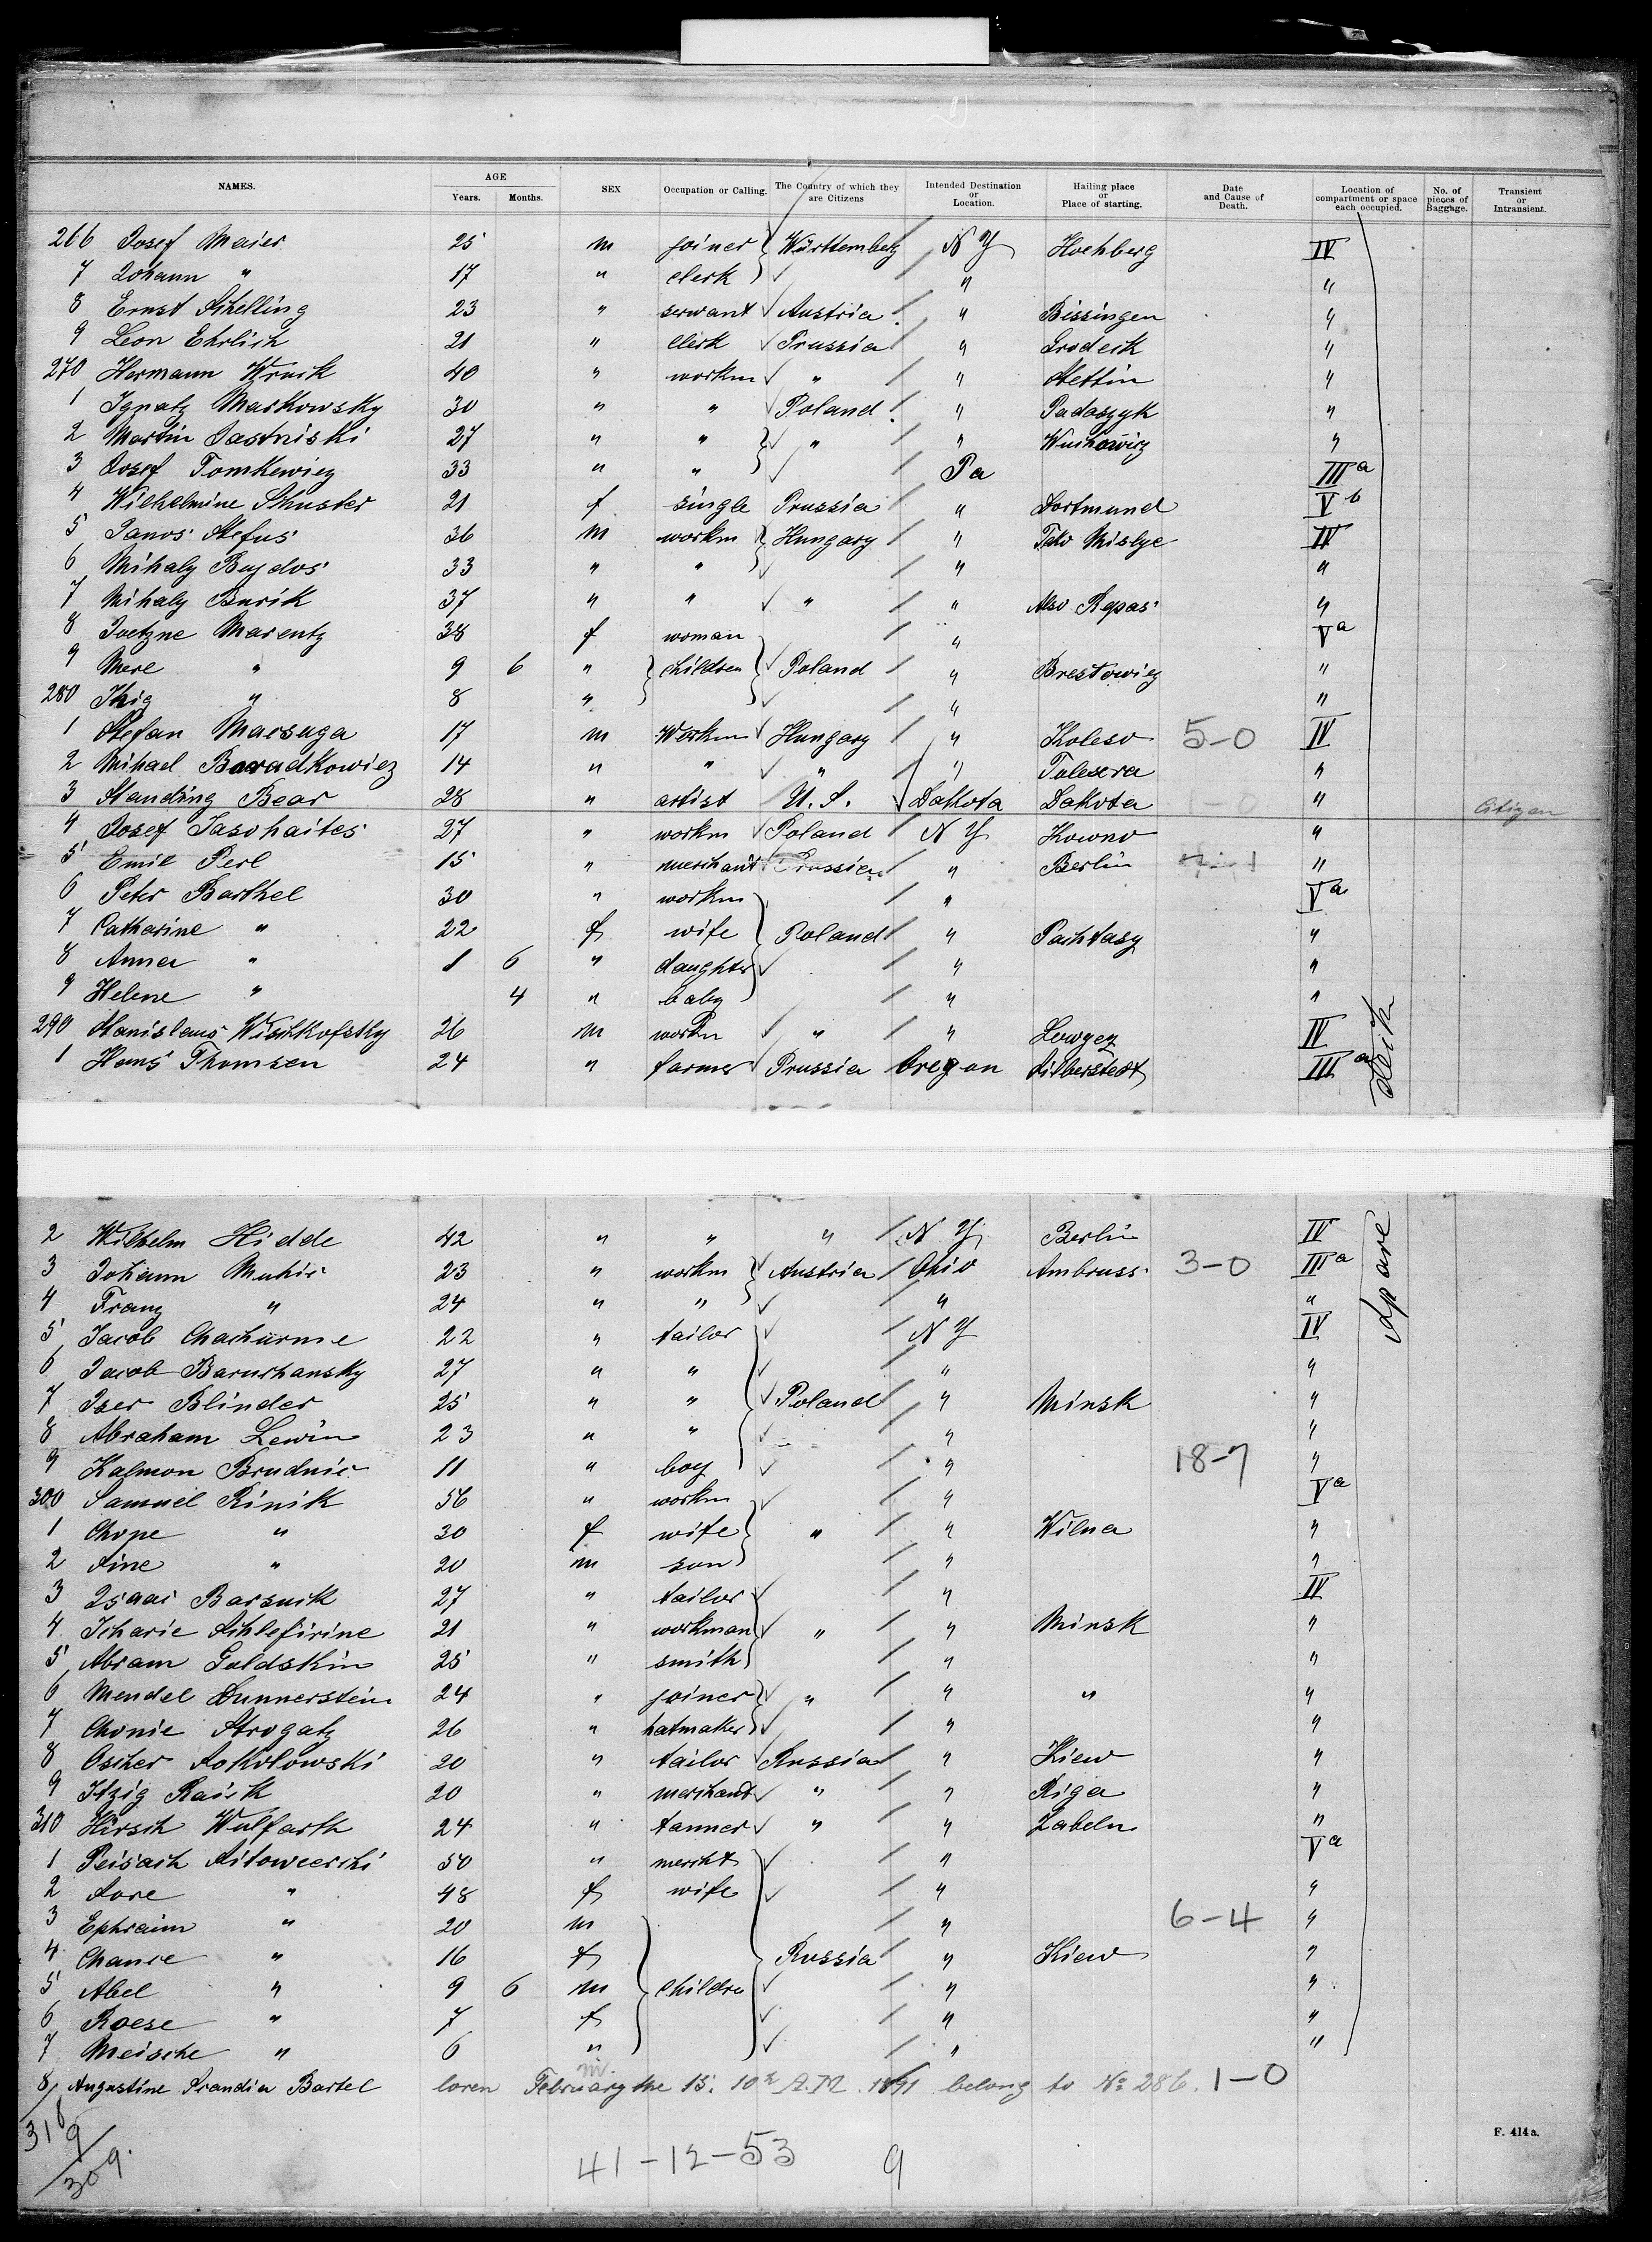 NAMES. AGE Years. Months. SEX Occupation or Calling. The Country of which they are Citizens Intended Destination or Location. Hailing place or Place of starting. Date and Cause of Death. Location of compartment or space each occupied. No. of pieces of Baggage. Transient or Intransient.
266 Josef Maier 25 m joiner Württemberg N Y Hochberg IV
7 Johann " 17 " clerk " "
8 Ernst Schelling 23 " servant Austria " Bissingen "
9 Leon Ehrlich 21 " clerk Prussia " "
270 Hermann 40 " workm " " Stettin "
1 Ignatz Markowsky 30 " " Poland " Padaszyk "
2 Martin Jastriski 27 " " " " "
3 Josef Tomkewicz 33 " " Pa III a
4 Wilhelmine Schuster 21 f single Prussia " Dortmund V b
5 Janos Stefus 36 m workm Hungary " Tako Mislye IV
6 Mihaly Bujdos 33 " " " "
7 Mihaly Burik 37 " " " " Also Repas "
8 Marentz 38 f woman " V a
9 Mere " 9 6 " children Poland " Brestowicz "
280 " 8 " " "
1 Stefan Macsuga 17 m Workm Hungary " Koleso 5-0 IV
2 Mihael Bavadkowicz 14 " " " " Tolesera "
3 Standing Bear 28 " artist U. S. Dakota Dakota 1-0 " Citizen
4 Josef Jasohaites 27 " workm Poland N Y Kowno "
5 Emil Perl 15 " merchant Prussia " Berlin "
6 Peter Barthel 30 " workm " V a
7 Catharine " 22 f wife Poland " Pachtasy "
8 Anna " 1 6 " daughter " "
9 Helene " 4 " baby " "
290 Stanislaus Wischkofsky 26 m workm " " Lowgez IV
1 Hans Thomsen 24 " farmer Prussia Oregon Silberstedt III a
2 Wilhelm Hidde 42 " " " N Y Berlin IV
3 Johann Muhic 23 " workm Austria Ohio Ambruss 3-0 III a
4 Franz " 24 " " " "
5 Jacob Chachurme 22 " tailor N Y IV
6 Jacob Baruchansky 27 " " " "
7 Iser Blinder 25 " " Poland " Minsk "
8 Abraham Lewin 23 " " " "
9 Kalmon Brudnie 11 " boy " 18-7 "
300 Samuel Rinik 56 " workm " V a
1 Chope " 30 f wife " " Wilna "
2 Sine " 20 m son " "
3 Isaac Barsuik 27 " tailor " IV
4 Icharie Schlefirine 21 " workman " " Minsk "
5 Abram Goldskin 25 " smith " "
6 Mendel Dunnerstein 24 " joiner " " " "
7 Chonie Strogatz 26 " hatmaker " "
8 Oscher Sokolowski 20 " tailor Russia " Kiew "
9 Itzig Raick 20 " merchant " " Riga "
310 Hirsch Wulfarth 24 " tanner " " Zabeln "
1 Peisach 50 " mercht " V a
2 Sore " 48 f wife " "
3 Ephraim " 20 m " 6-4 "
4 Chance " 16 f Russia " Kiew "
5 Abel " 9 6 m children " "
6 Roese " 7 f " "
7 Meische " 6 " " "
8 Augustine Bartel boren February the 15. A. M. 1891 belong to No 286. 1-0
318
9
309.
41-12-53 9
F. 414a.